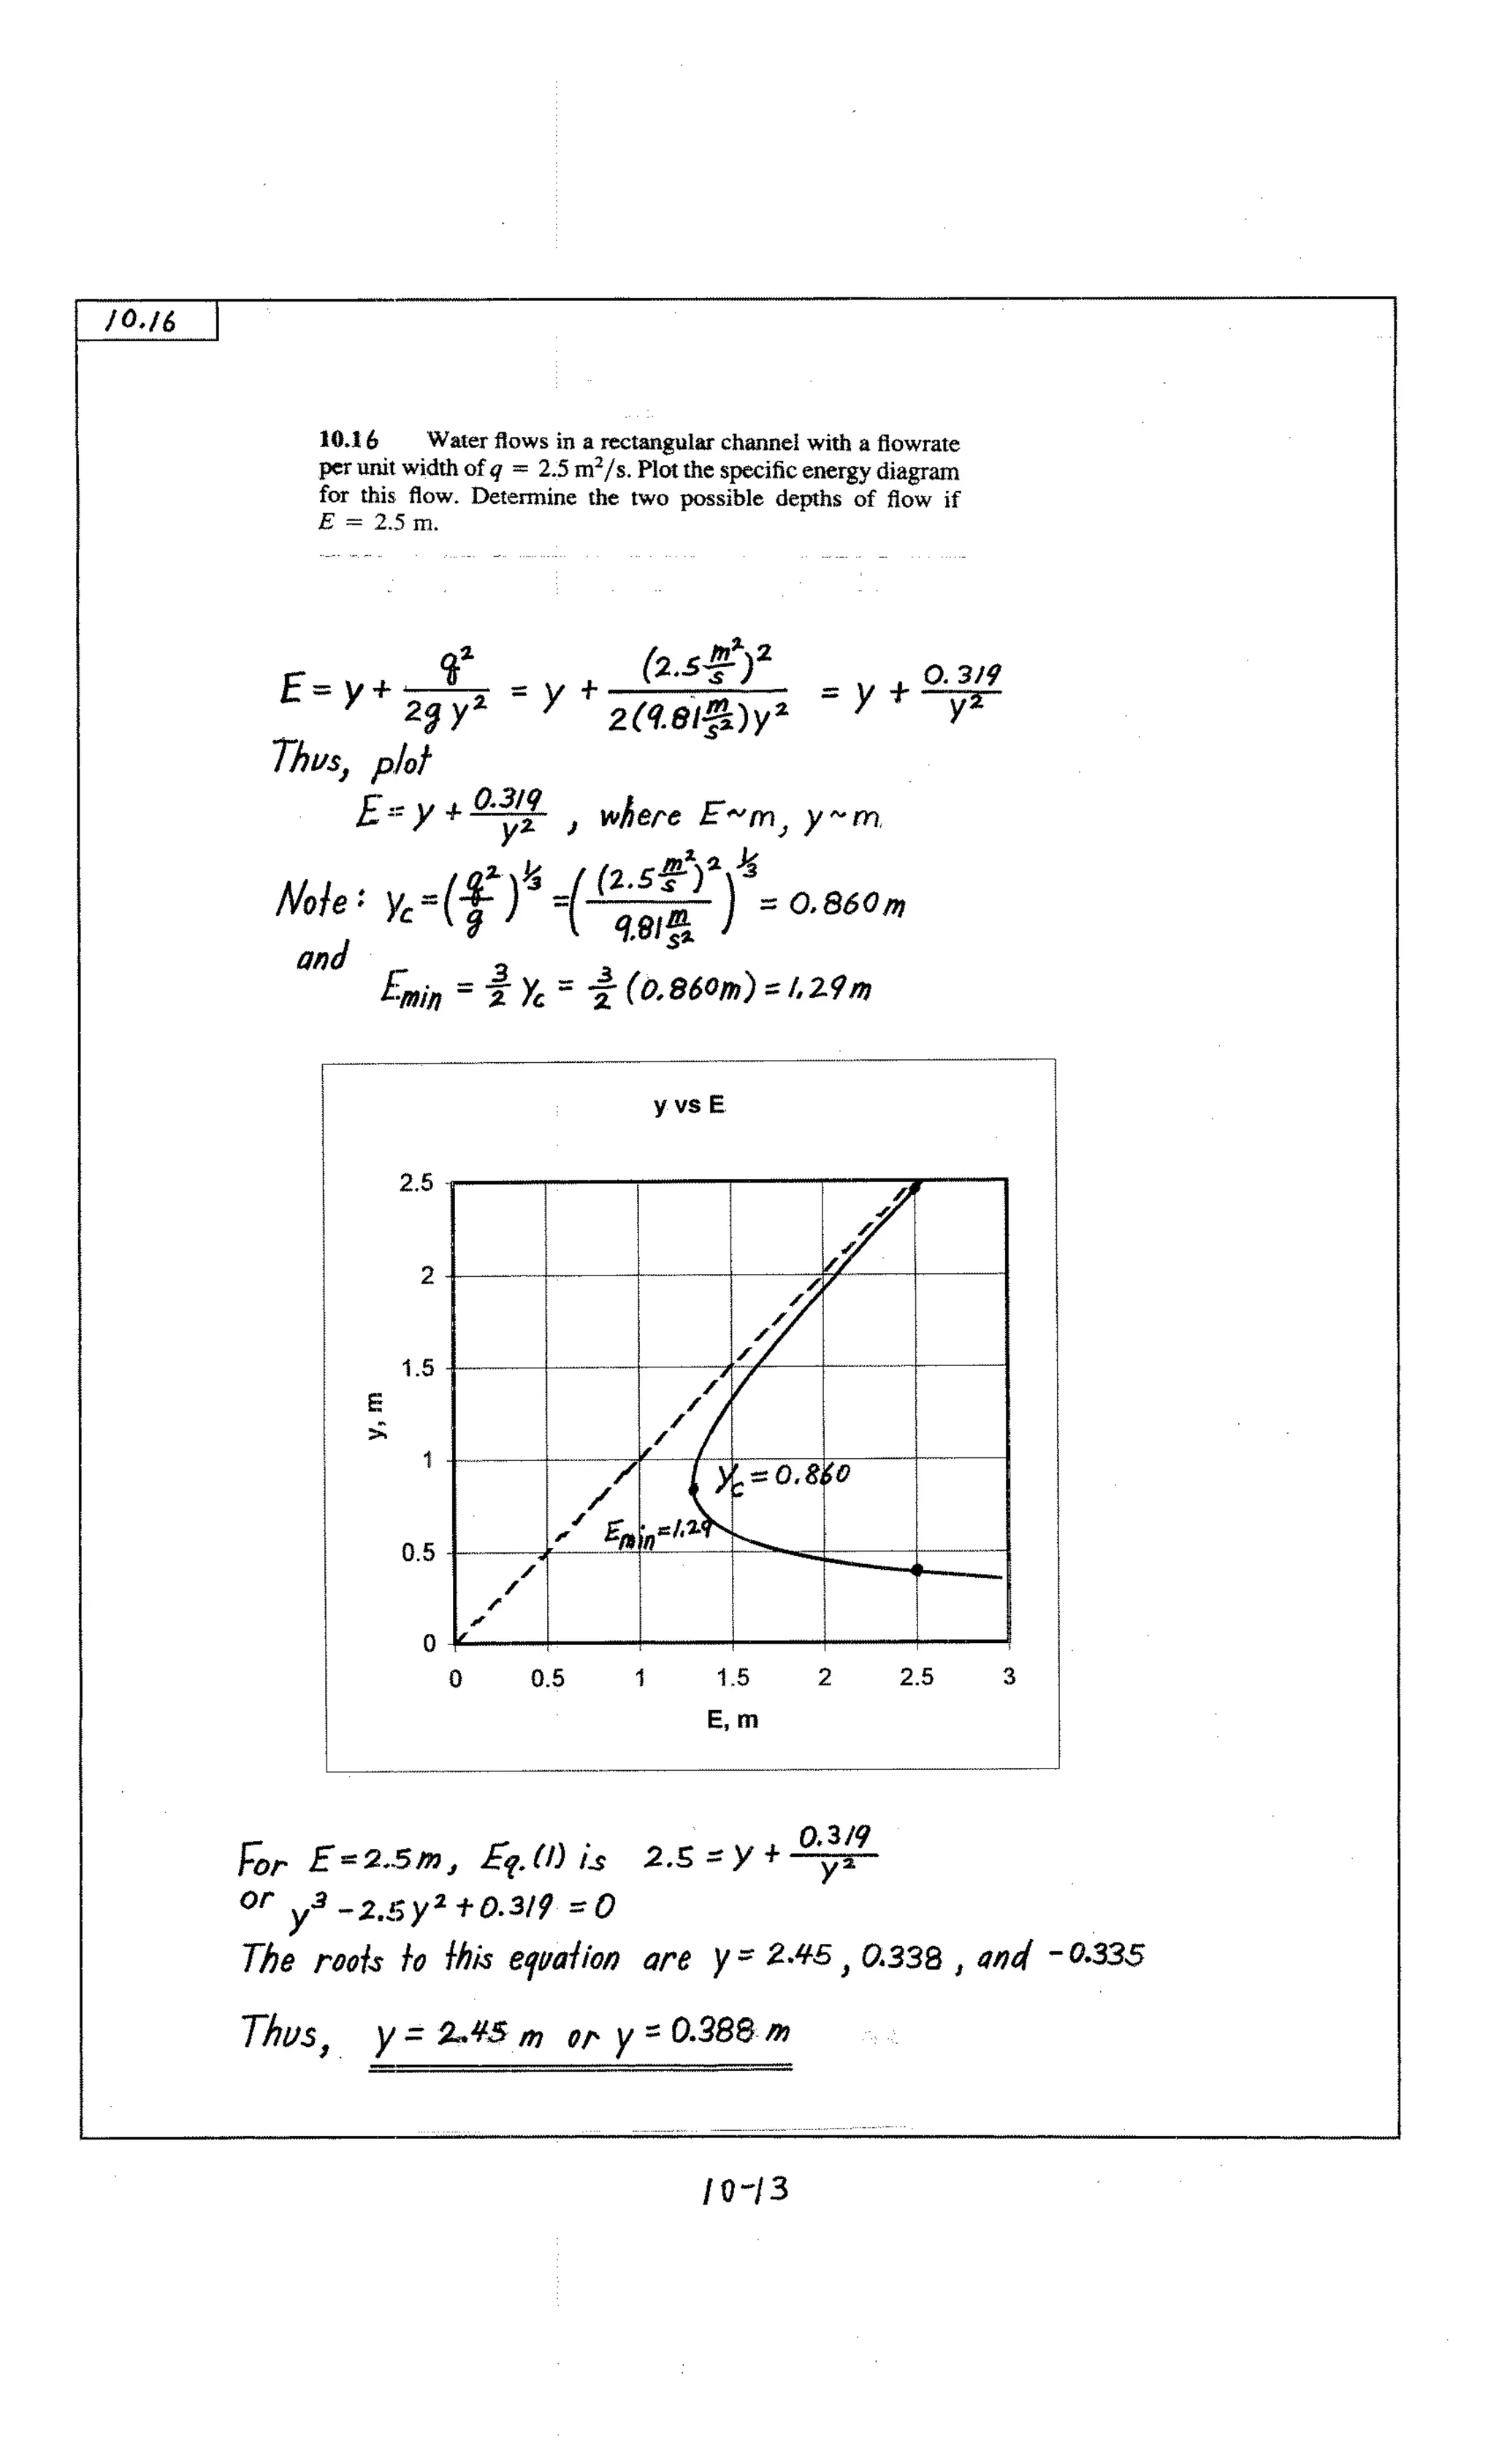 10.16
10.16 Water flows in a rectangular channel with a flowrate
per unit width of q = 2.5 m²/s. Plot the specific energy diagram
for this flow. Determine the two possible depths of flow if
E = 2.5 m.
E = y + q²/(2g y²) = y + (2.5 m²/s)²/(2(9.81 m/s²)y²) = y + 0.319/y²
Thus, plot
E = y + 0.319/y² , where E~m, y~m.
Note: yc = (q²/g)^⅓ = ((2.5 m²/s)²/(9.81 m/s²))^⅓ = 0.860 m
and
Emin = 3/2 yc = 3/2 (0.860m) = 1.29 m
y vs E
2.5
2
1.5
1
0.5
0
y, m
yc = 0.860
Emin = 1.29
0 0.5 1 1.5 2 2.5 3
E, m
For E = 2.5 m, Eq. (1) is 2.5 = y + 0.319/y²
or y³ - 2.5 y² + 0.319 = 0
The roots to this equation are y = 2.45, 0.338, and -0.335
Thus, y = 2.45 m or y = 0.388 m
10-13